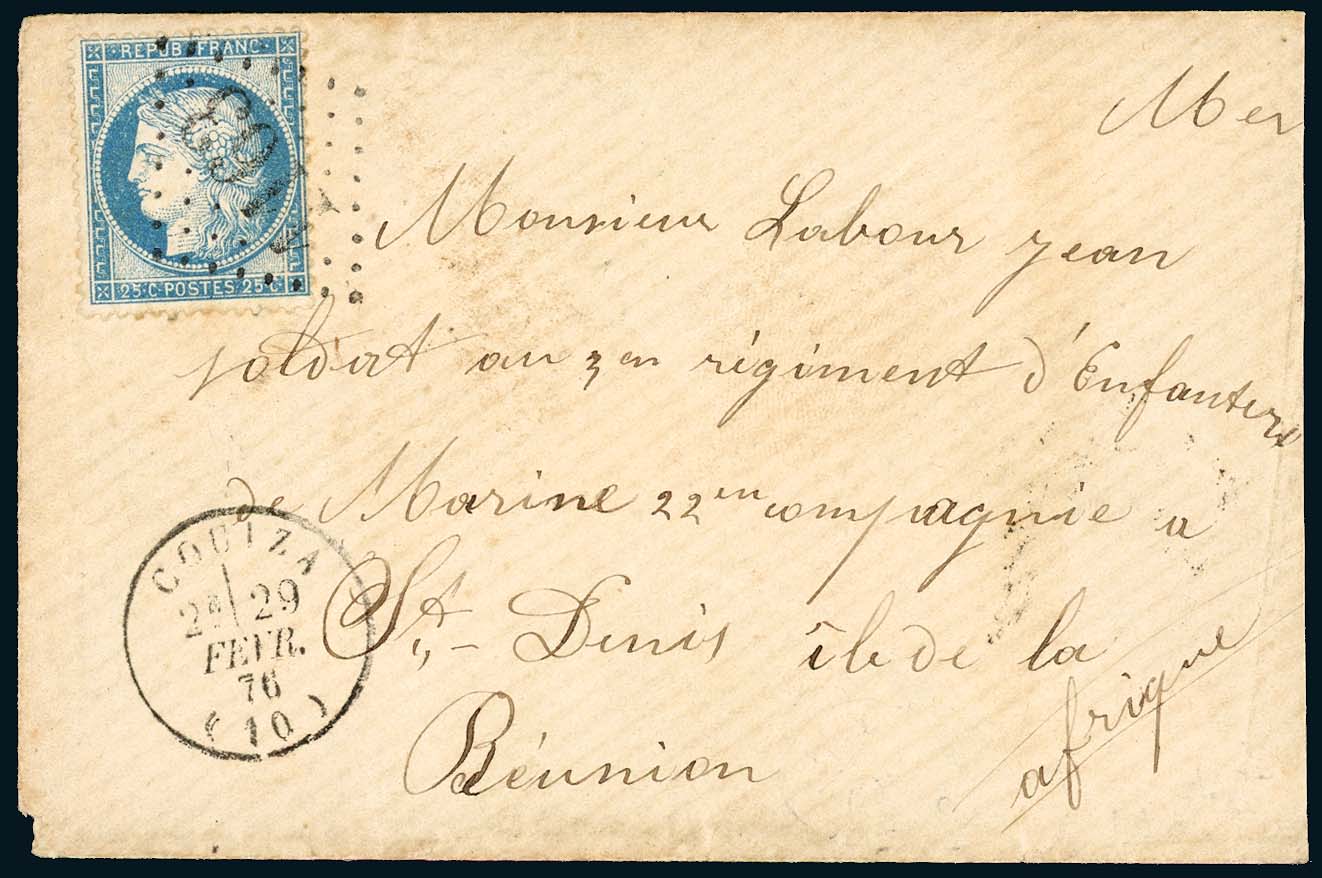 REPUB·FRANC·
25·C·POSTES·25·C
Mer
Monsieur Labour jean
soldat au 3en régiment d'Enfantere
de Marine 22en compagnie a
St,- Denis île de la
Réunion
afrique
COUIZA
2E 29
FEVR.
76
(10)